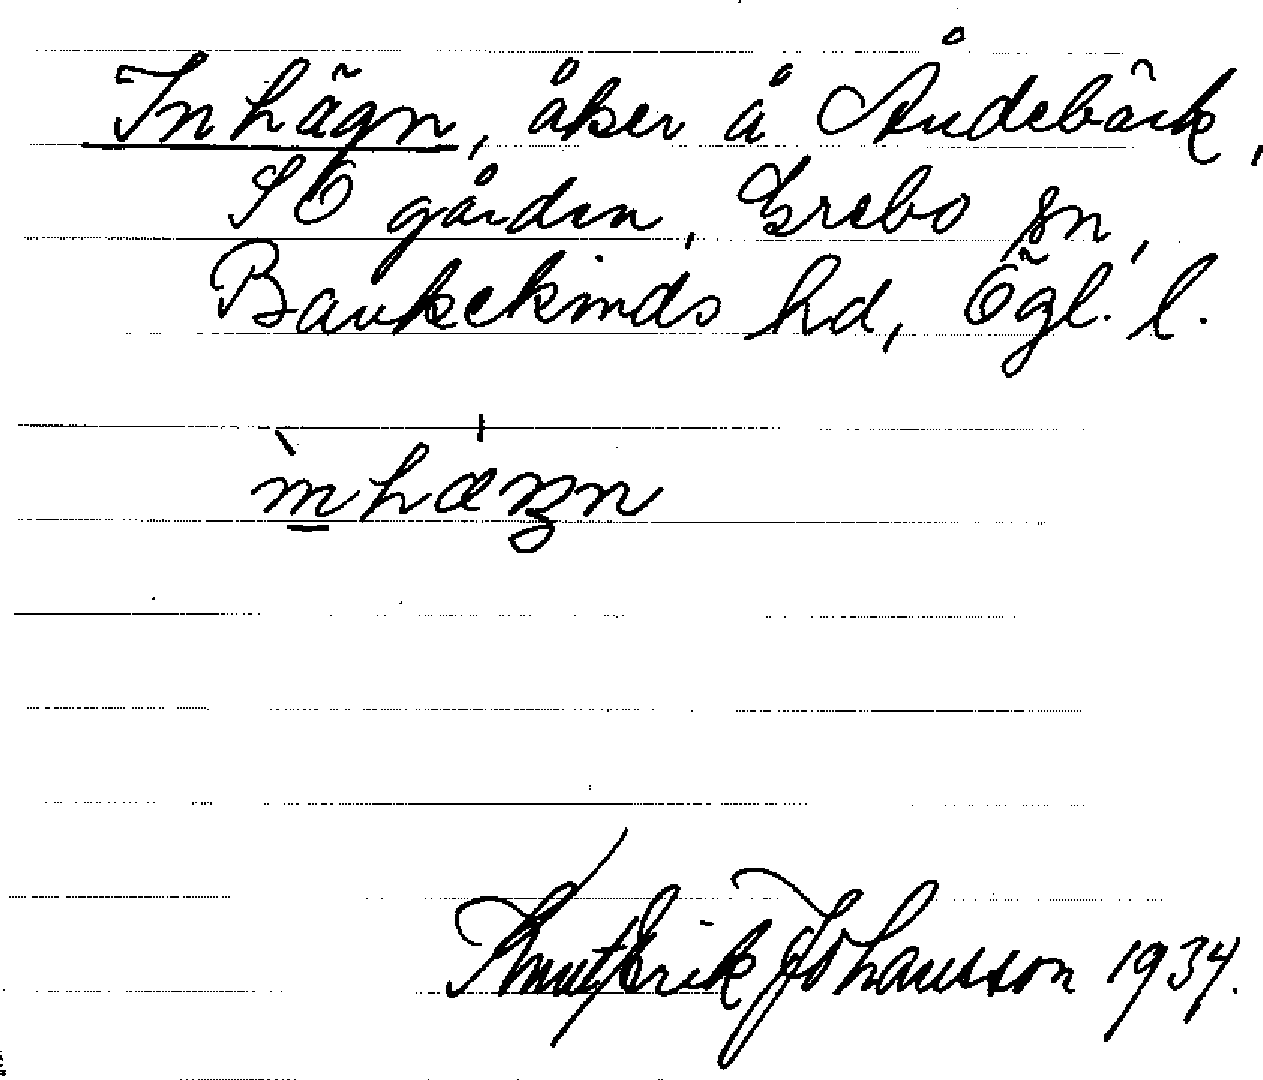 Inhägn, åker å Åndebäck,
SÖ gården, Grebo sn,
Bankekinds hd, Ögl. l.
ìnhæŋn
Knut Erik Johansson 1934.